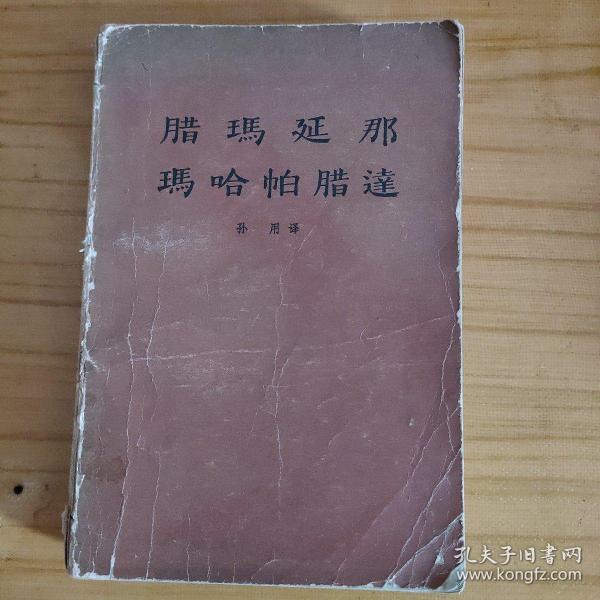 腊瑪延那
瑪哈帕腊達
孙用译
孔夫子旧书网
www.kongfz.com